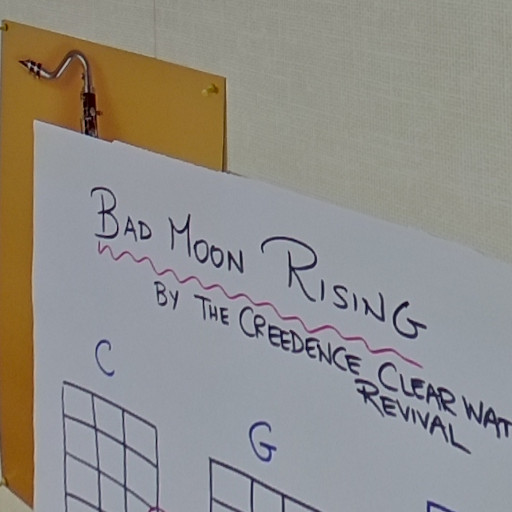 BAD MOON RISING
BY THE CREEDENCE CLEAR WAT
REVIVAL
C
G